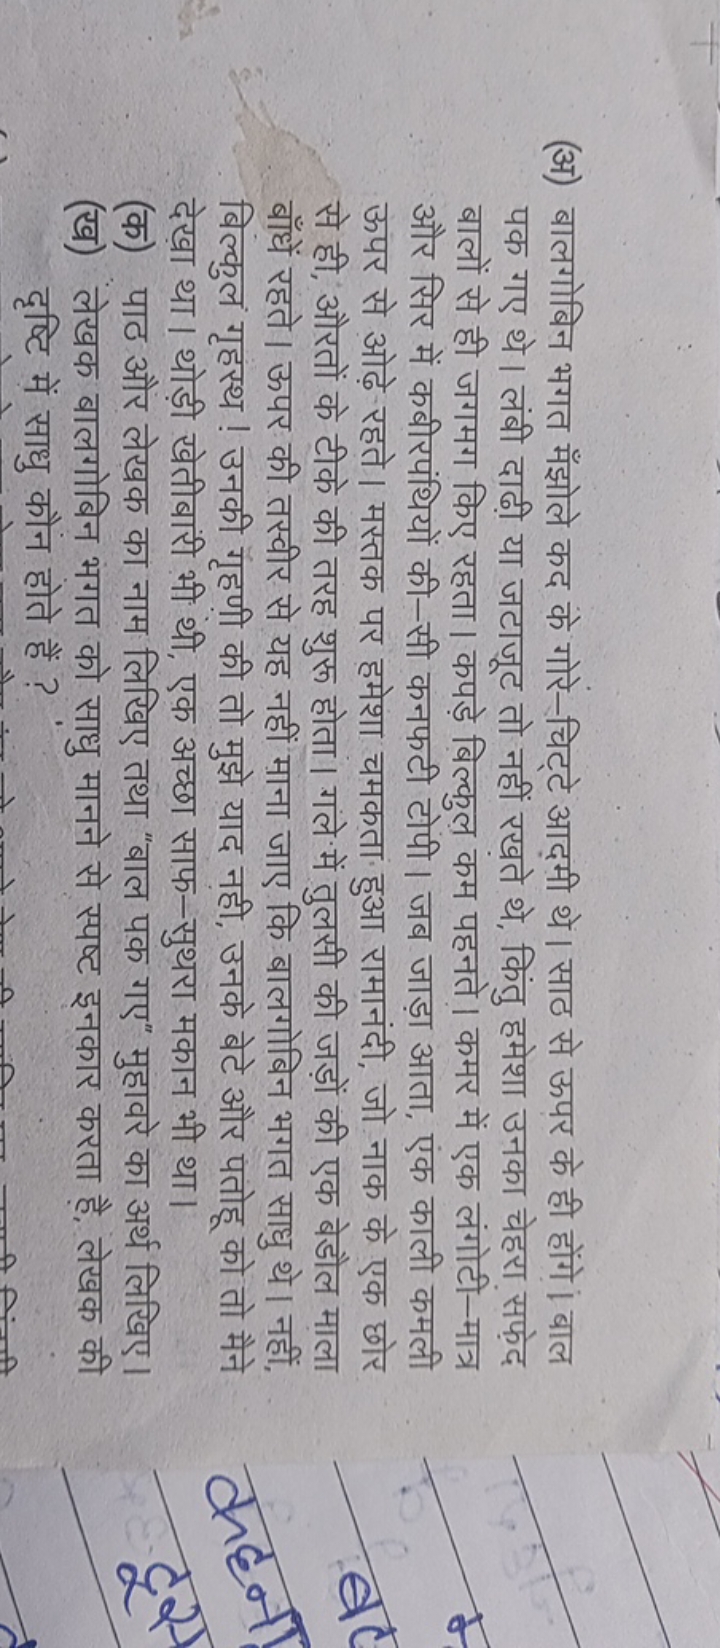 (अ) बालगोबिन भगत मँझोले कद के गोरे–चिट्टे आदमी थे। साठ से ऊपर के ही होंगे। बाल
पक गए थे। लंबी दाढ़ी या जटाजूट तो नहीं रखते थे, किंतु हमेशा उनका चेहरा सफ़ेद
बालों से ही जगमग किए रहता। कपड़े बिल्कुल कम पहनते। कमर में एक लंगोटी–मात्र
और सिर में कबीरपंथियों की–सी कनफटी टोपी। जब जाड़ा आता, एक काली कमली
ऊपर से ओढ़े रहते। मस्तक पर हमेशा चमकता हुआ रामानंदी, जो नाक के एक छोर
से ही, औरतों के टीके की तरह शुरू होता। गले में तुलसी की जड़ों की एक बेडौल माला
बाँधें रहते। ऊपर की तस्वीर से यह नहीं माना जाए कि बालगोबिन भगत साधु थे। नहीं,
बिल्कुल गृहस्थ! उनकी गृहणी की तो मुझे याद नहीं, उनके बेटे और पतोहू को तो मैंने
देखा था। थोड़ी खेतीबारी भी थी, एक अच्छा साफ–सुथरा मकान भी था।
(क) पाठ और लेखक का नाम लिखिए तथा "बाल पक गए" मुहावरे का अर्थ लिखिए।
(ख) लेखक बालगोबिन भगत को साधु मानने से स्पष्ट इनकार करता है, लेखक की
दृष्टि में साधु कौन होते हैं?